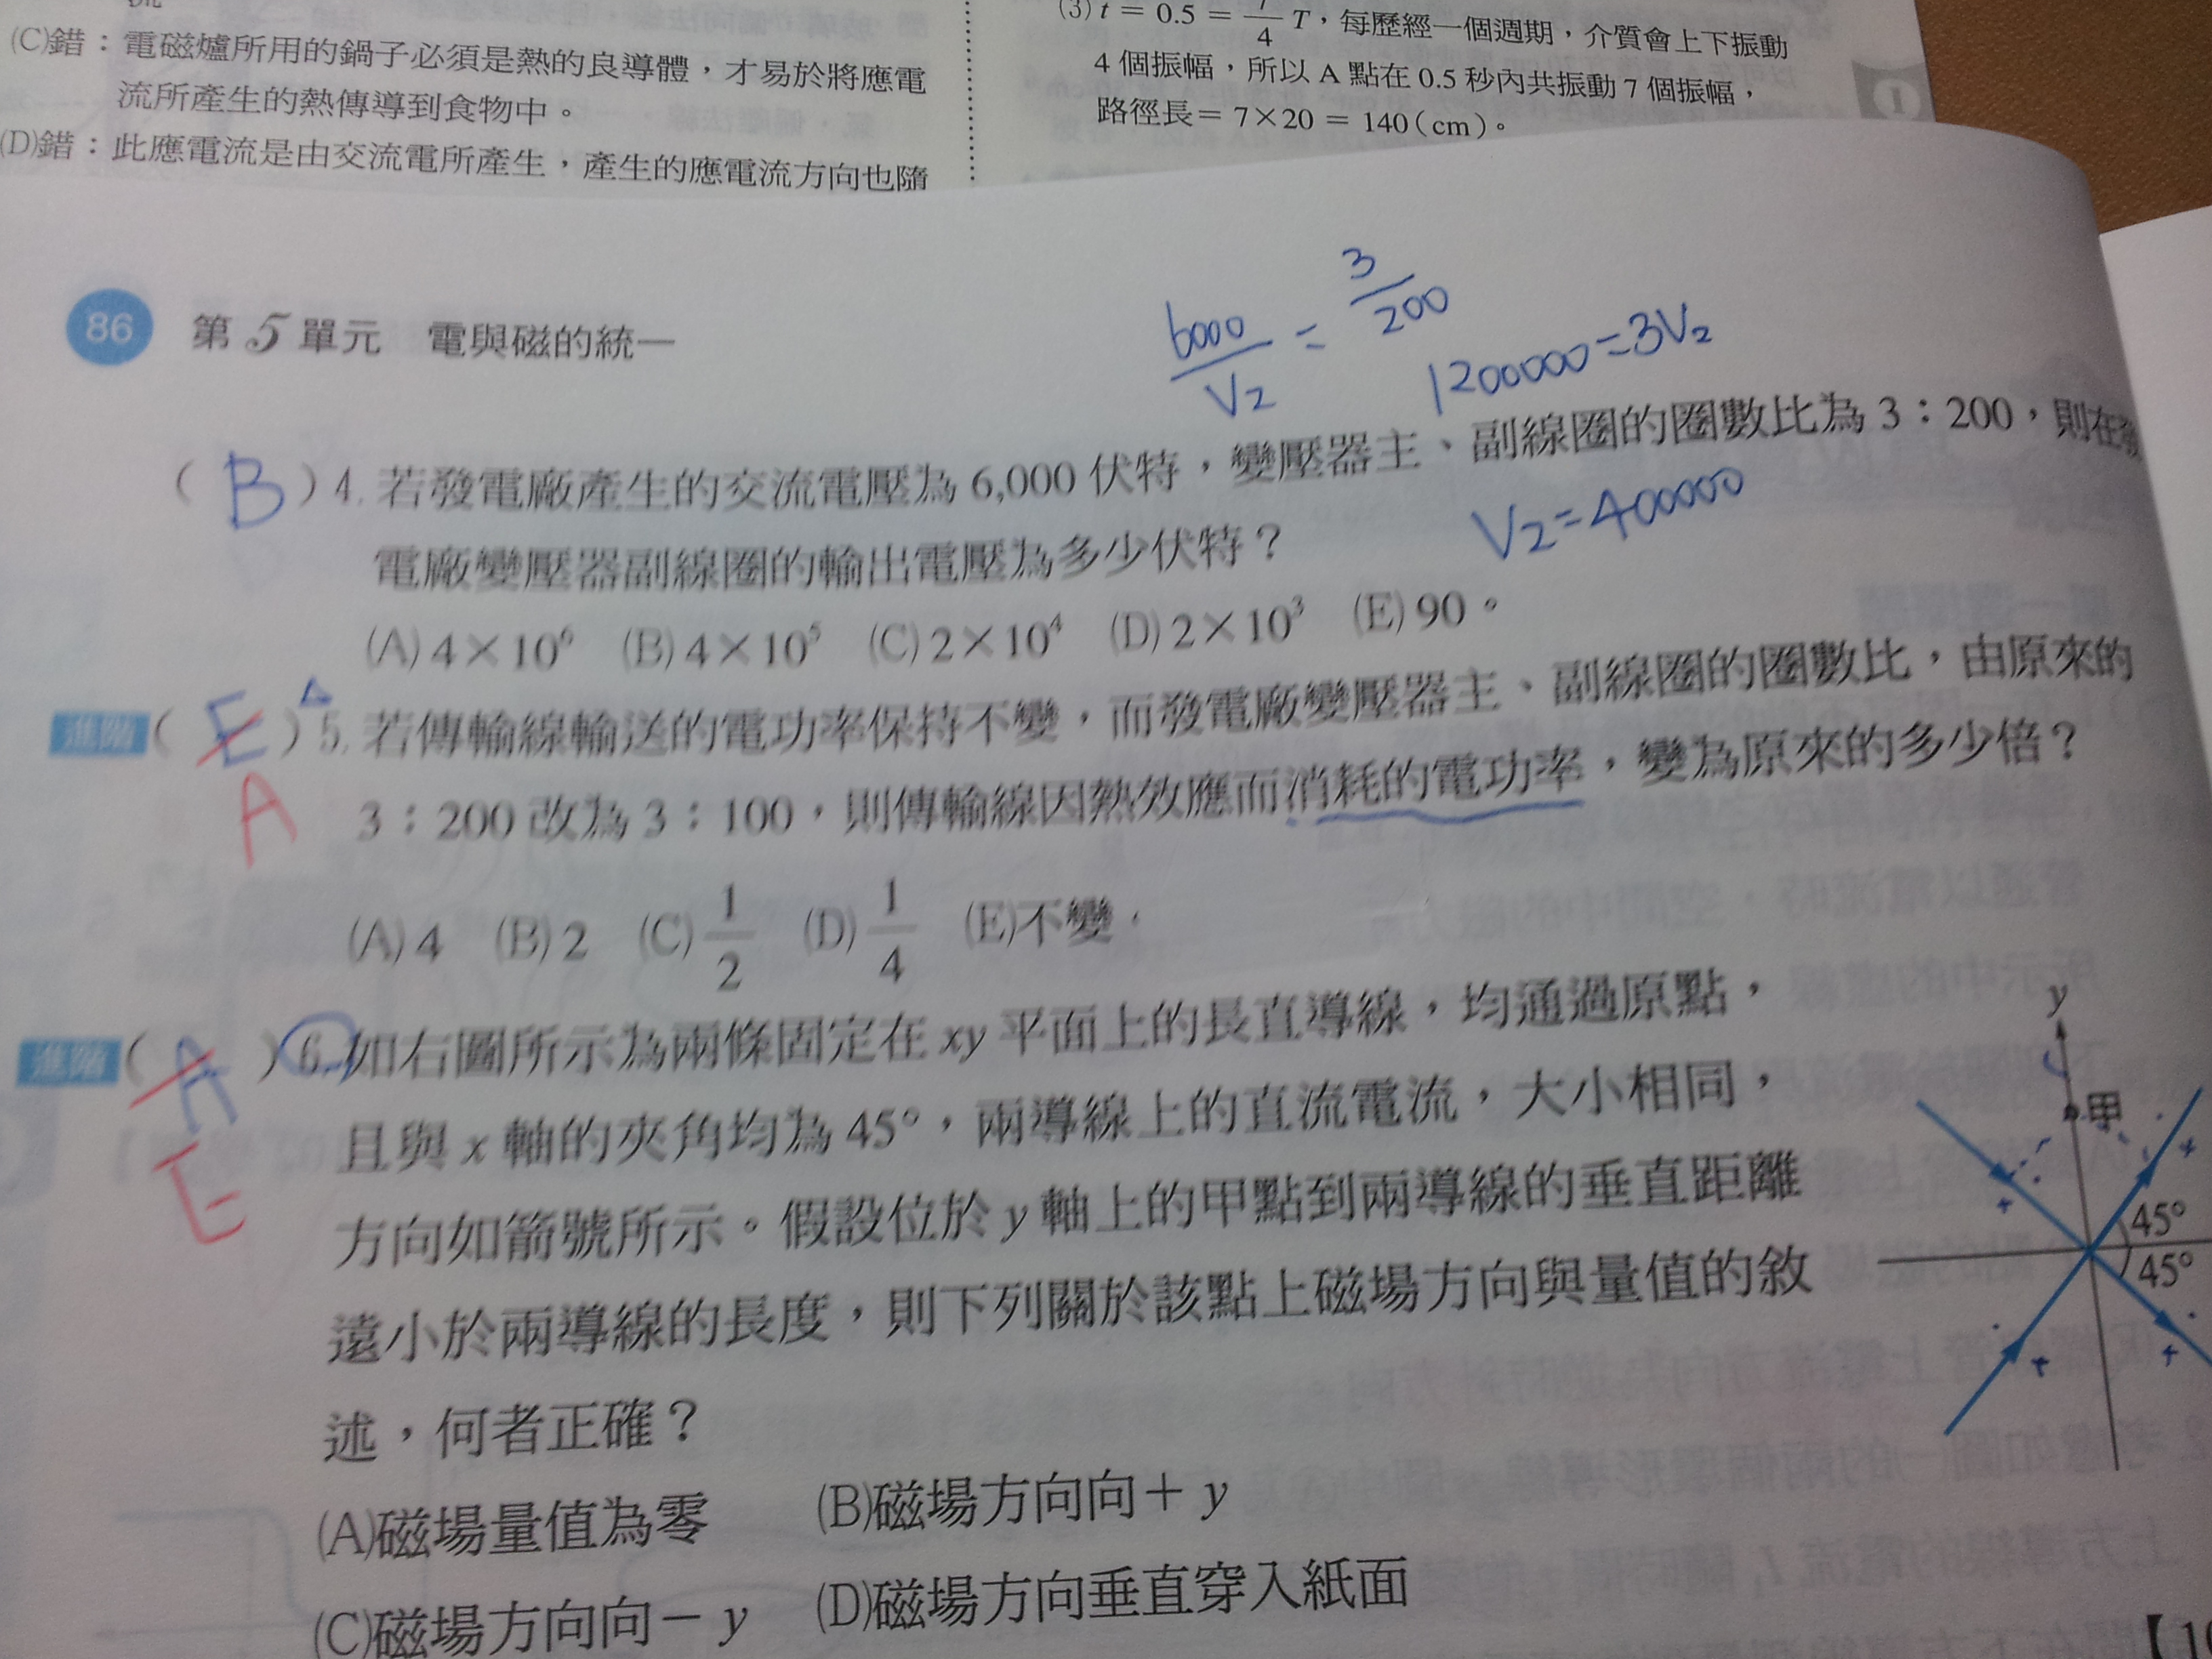 (C)錯：電磁爐所用的鍋子必須是熱的良導體，才易於將應電
流所產生的熱傳導到食物中。
(D)錯：此應電流是由交流電所產生，產生的應電流方向也隨
(3) t = 0.5 = 7/4 T，每歷經一個週期，介質會上下振動
4 個振幅，所以 A 點在 0.5 秒內共振動 7 個振幅，
路徑長＝ 7×20 ＝ 140（cm）。
1
86 第5單元 電與磁的統一
6000/V2 = 3/200
1200000=3V2
V2=400000
（ B ）4. 若發電廠產生的交流電壓為 6,000 伏特，變壓器主、副線圈的圈數比為 3：200，則在發
電廠變壓器副線圈的輸出電壓為多少伏特？
(A) 4×10⁶ (B) 4×10⁵ (C) 2×10⁴ (D) 2×10³ (E) 90。
進階（ E ）5. 若傳輸線輸送的電功率保持不變，而發電廠變壓器主、副線圈的圈數比，由原來的
A
3：200 改為 3：100，則傳輸線因熱效應而消耗的電功率，變為原來的多少倍？
(A) 4 (B) 2 (C) 1/2 (D) 1/4 (E)不變。
進階（ A ）6. 如右圖所示為兩條固定在 xy 平面上的長直導線，均通過原點，
E
且與 x 軸的夾角均為 45°，兩導線上的直流電流，大小相同，
方向如箭號所示。假設位於 y 軸上的甲點到兩導線的垂直距離
遠小於兩導線的長度，則下列關於該點上磁場方向與量值的敘
述，何者正確？
(A)磁場量值為零 (B)磁場方向向＋ y
(C)磁場方向向－ y (D)磁場方向垂直穿入紙面
y
甲
45°
45°
【10